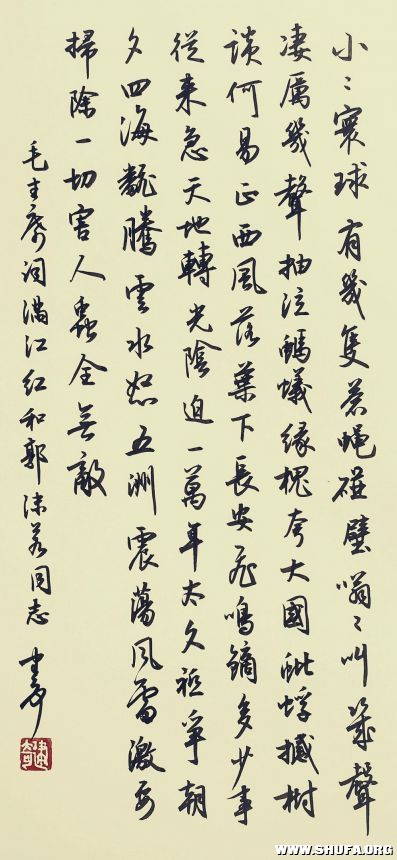 小〻寰球有幾隻蒼蝇碰壁嗡〻叫幾聲
凄厲幾聲抽泣螞蟻緣槐夸大國蚍蜉撼樹
談何易正西風落葉下長安飛鳴鏑多少事
從来急天地轉光陰迫一萬年太久祗爭朝
夕四海翻騰雲水怒五洲震蕩風雷激要
掃除一切害人蟲全無敵
毛主席词满江红和郭沫若同志
WWW.SHUFA.ORG